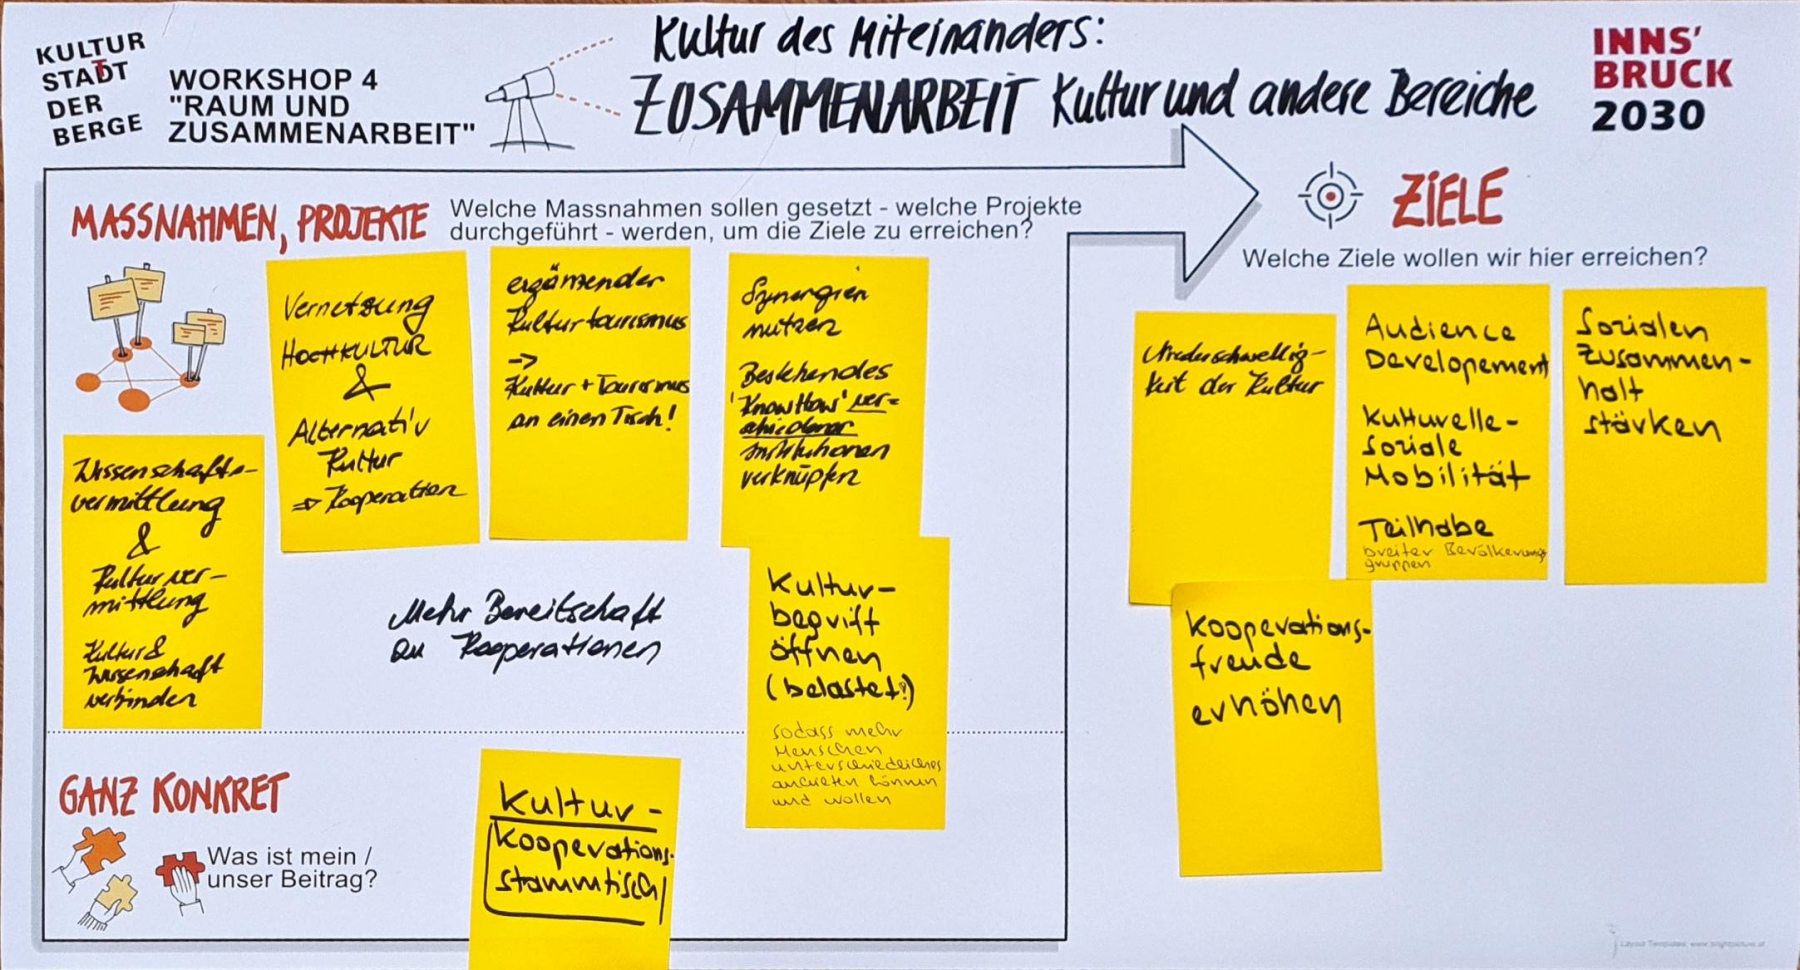 KULTUR
STADT
DER
BERGE
WORKSHOP 4
"RAUM UND
ZUSAMMENARBEIT"
Kultur des Miteinanders:
ZUSAMMENARBEIT Kultur und andere Bereiche
INNS'
BRUCK
2030
MASSNAHMEN, PROJEKTE
Welche Massnahmen sollen gesetzt - welche Projekte
durchgeführt - werden, um die Ziele zu erreichen?
Wissenschafts-
vermittlung
&
Kulturver-
mittlung
Kultur &
Wissenschaft
verbinden
Vernetzung
HOCHKULTUR
&
Alternativ
Kultur
=> Kooperation
ergänzender
Kulturtourismus
->
Kultur + Tourismus
an einen Tisch!
Synergien
nutzen
Bestehendes
'Know How' ver-
schiedener
Institutionen
verknüpfen
Mehr Bereitschaft
zu Kooperationen
Kultur-
begriff
öffnen
(belastet?)
sodass mehr
Menschen
unterschiedliches
anbieten können
und wollen
GANZ KONKRET
Was ist mein /
unser Beitrag?
Kultur-
kooperations-
stammtisch
ZIELE
Welche Ziele wollen wir hier erreichen?
Niederschwellig-
keit der Kultur
Audience
Developement
Kulturelle-
soziale
Mobilität
Teilhabe
breiter Bevölkerungs
gruppen
Sozialen
Zusammen-
halt
stärken
Kooperations-
freude
erhöhen
Layout Templates: www.brightpicture.at